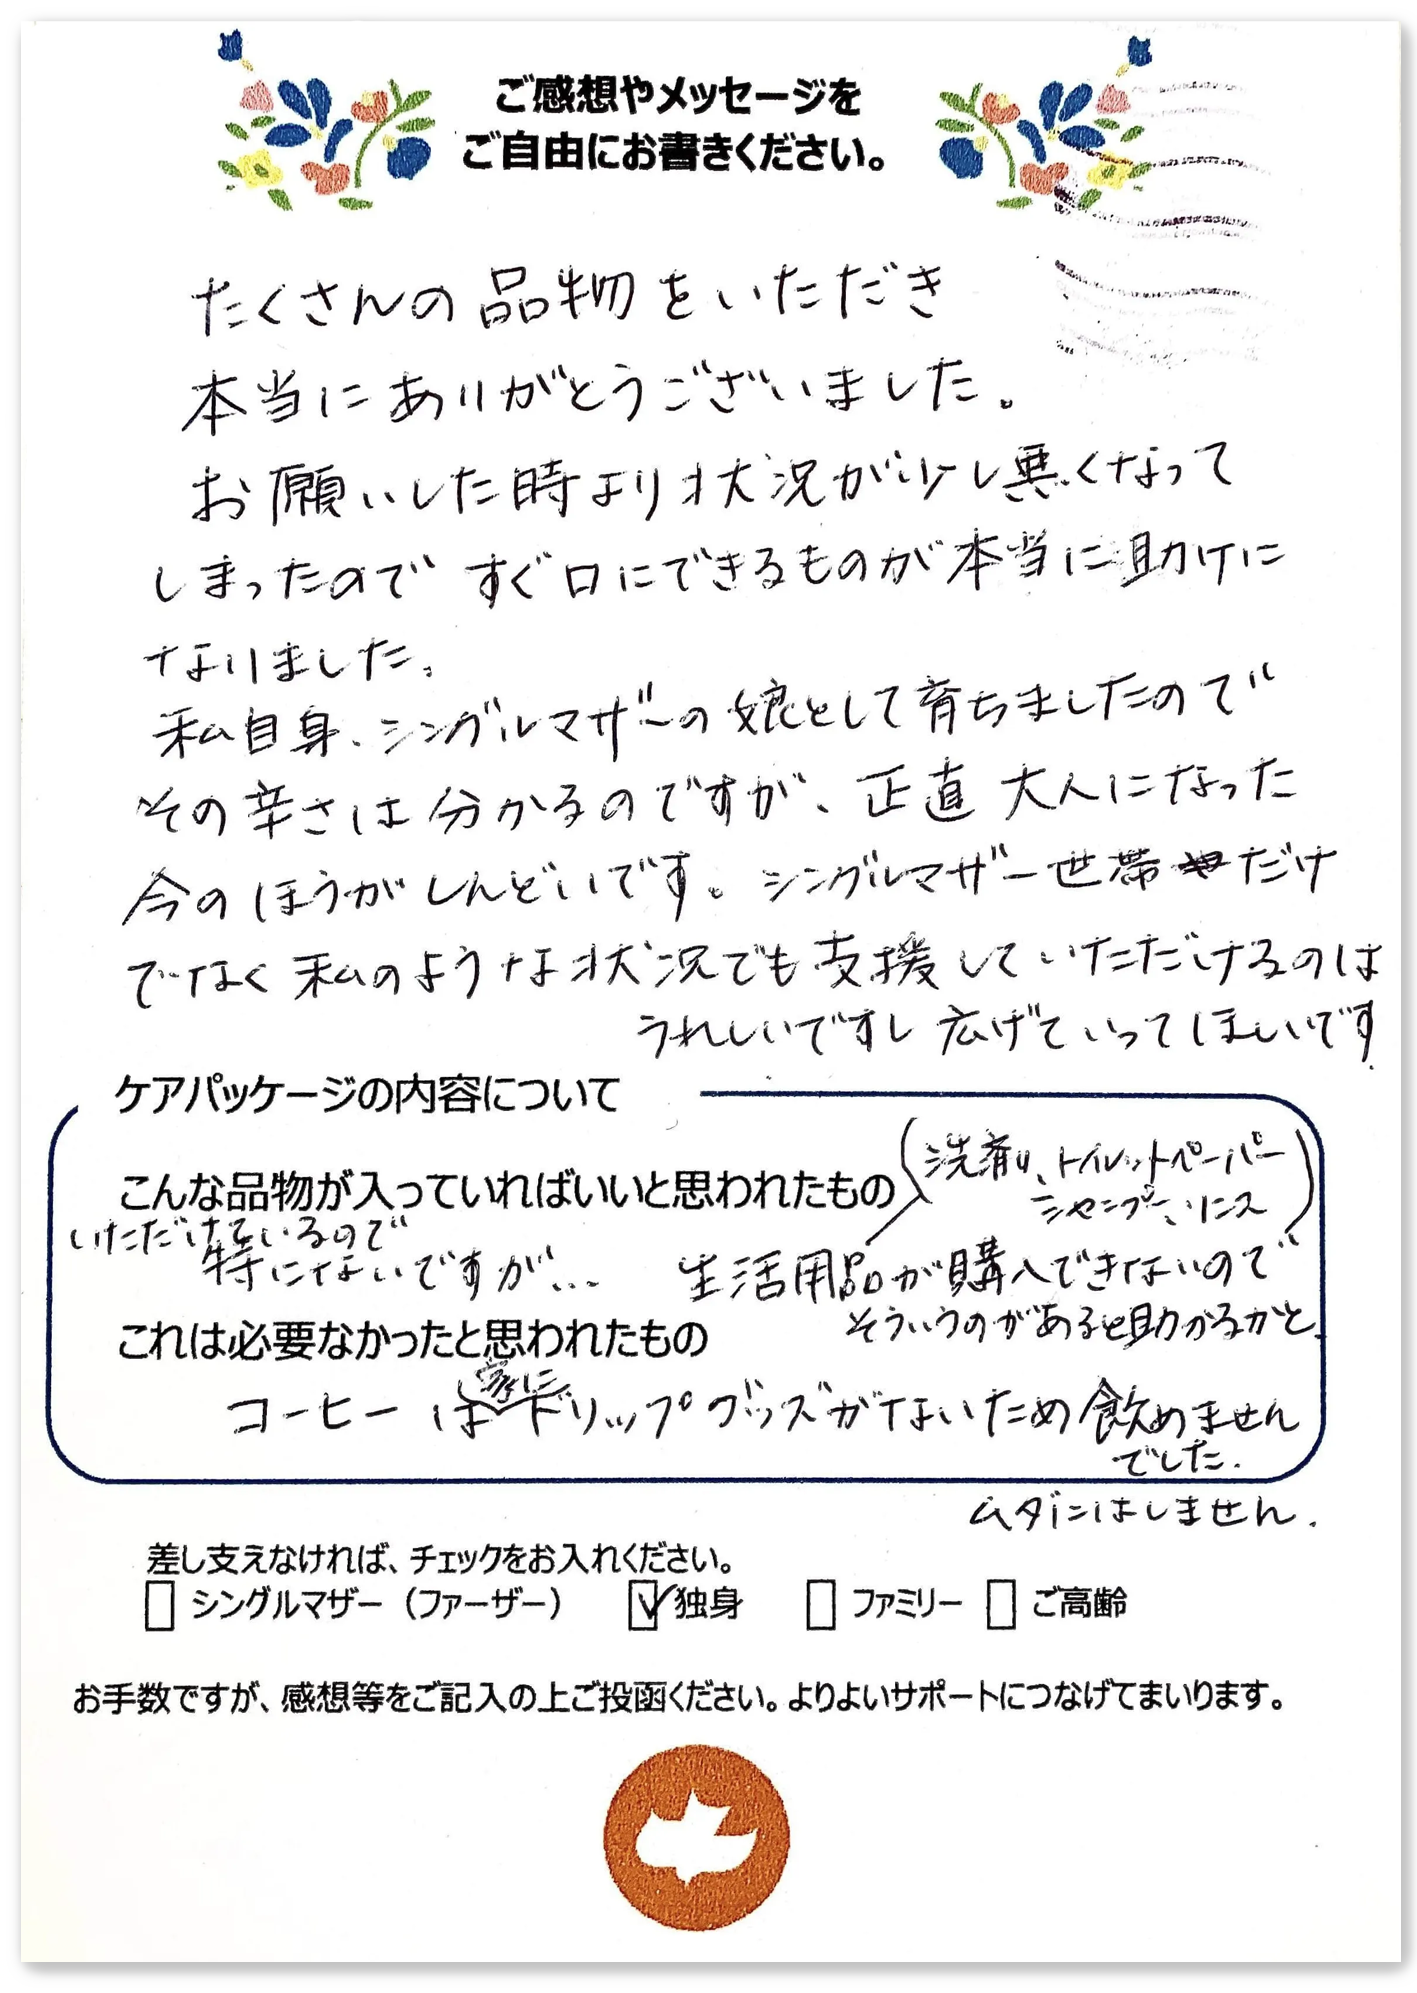 ご感想やメッセージを
ご自由にお書きください。
たくさんの品物をいただき
本当にありがとうございました。
お願いした時より状況が少し悪くなって
しまったので すぐ口にできるものが本当に助けに
なりました。
私自身、シングルマザーの娘として育ちましたので
その辛さは分かるのですが、正直 大人になった
今のほうがしんどいです。シングルマザー世帯だけ
でなく 私のような状況でも支援していただけるのは
うれしいですし 広げていってほしいです
ケアパッケージの内容について
こんな品物が入っていればいいと思われたもの
(洗剤、トイレットペーパー
シャンプー、リンス)
いただけているので
特にないですが… 生活用品が購入できないので
そういうのがあると助かるかと。
これは必要なかったと思われたもの
コーヒーは家にドリップグッズがないため飲めません
でした.
ムダにはしません.
差し支えなければ、チェックをお入れください。
□ シングルマザー（ファーザー） ☑ 独身 □ ファミリー □ ご高齢
お手数ですが、感想等をご記入の上ご投函ください。よりよいサポートにつなげてまいります。